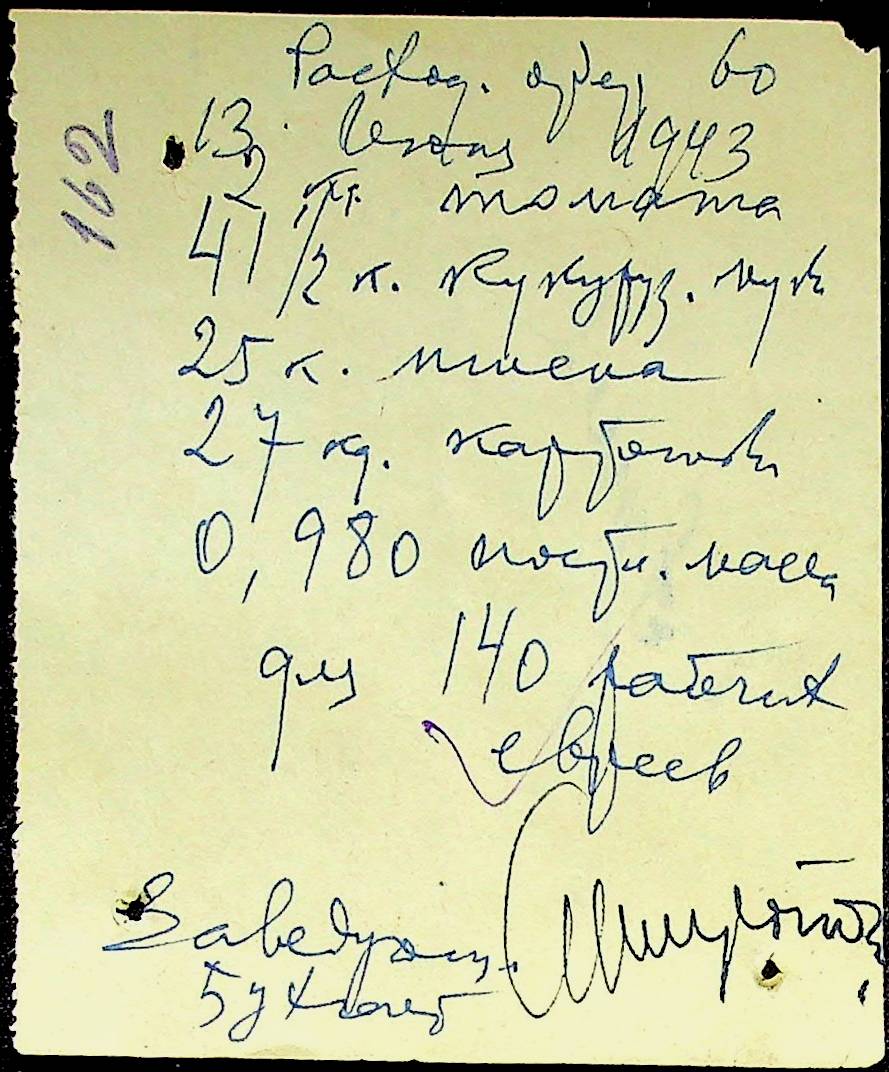 162
Расход. ордер 60
13. Июля 1943
2 к. томата
4 1/2 к. кукуруз. мук
25 к. пшена
27 кг. картошки
0,980 постн. масла
для 140 рабочих
евреев
Заведующ.
Кухней